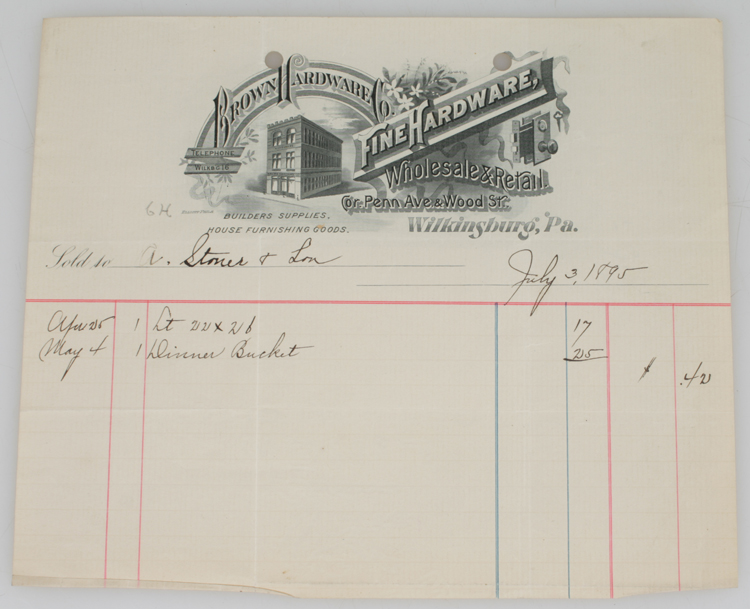 BROWN HARDWARE CO.
FINE HARDWARE,
Wholesale & Retail.
Cor. Penn Ave & Wood St.
Wilkinsburg, Pa.
TELEPHONE
BUILDERS SUPPLIES,
HOUSE FURNISHING GOODS.
Sold to A. Stoner & Son
July 3, 1895
Apr 25 1 Lt 22 x 26 17
May 4 1 Dinner Bucket 25
$ .42